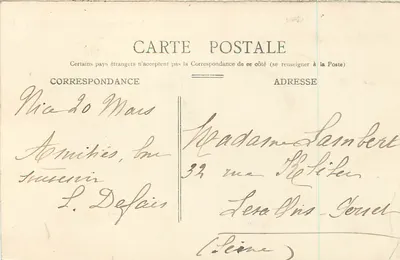 CARTE POSTALE
Certains pays étrangers n'acceptent pas la Correspondance de ce côté (se renseigner à la Poste)
CORRESPONDANCE
ADRESSE
20 Mars
Amitiés, bon
souvenir
Madame Lambert
32 rue Kléber
(Seine)